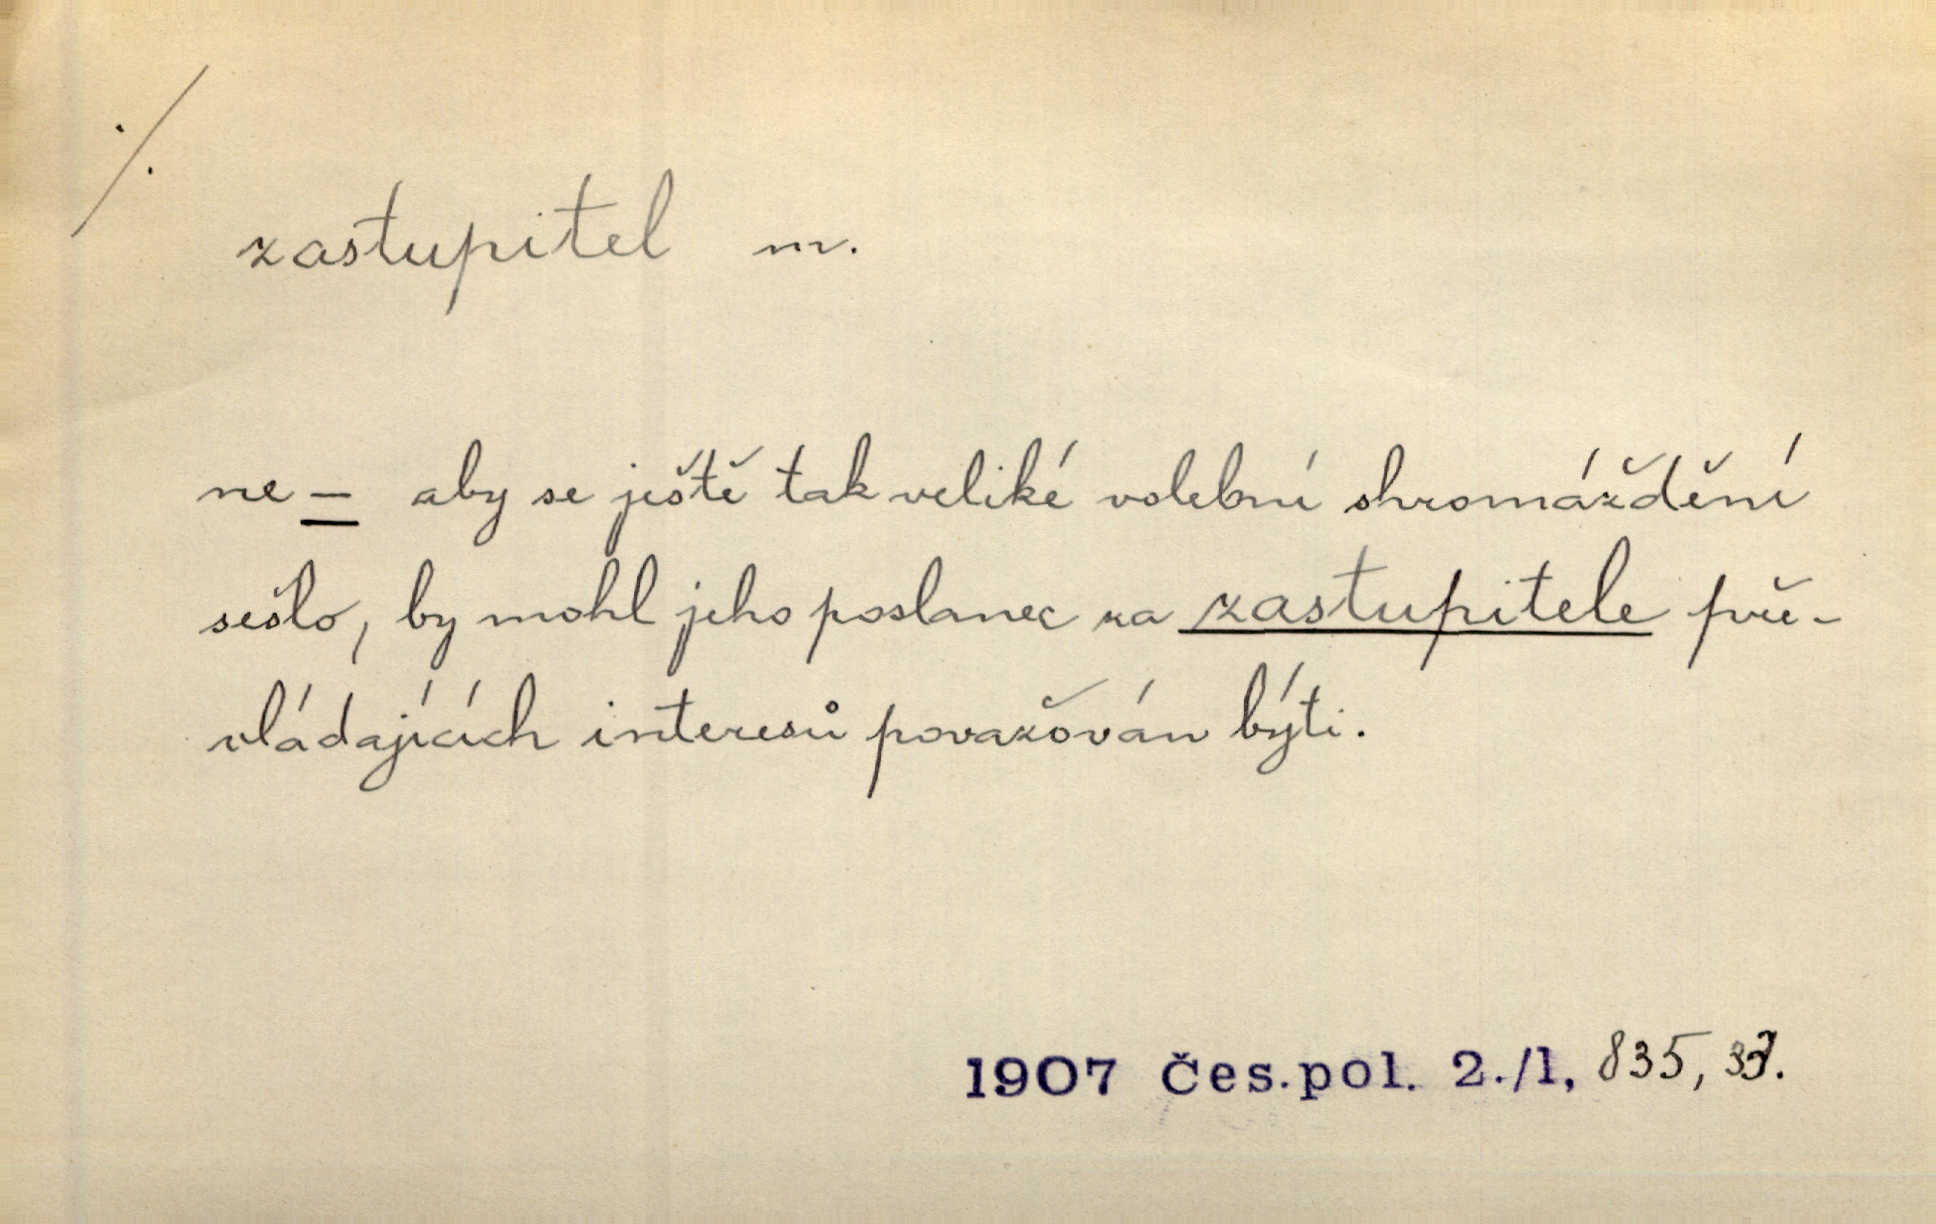 ./.
zastupitel m.
ne – aby se ještě tak veliké volební shromáždění
sešlo, by mohl jeho poslanec za zastupitele pře-
vládajících interesů považován býti.
1907 Čes.pol. 2./1, 835,